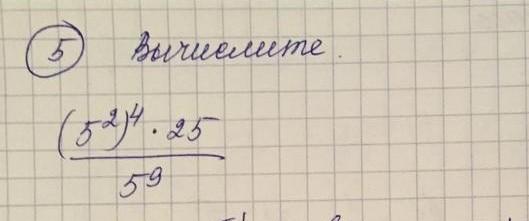 5 Вычислите.
(5²)⁴ · 25
5⁹